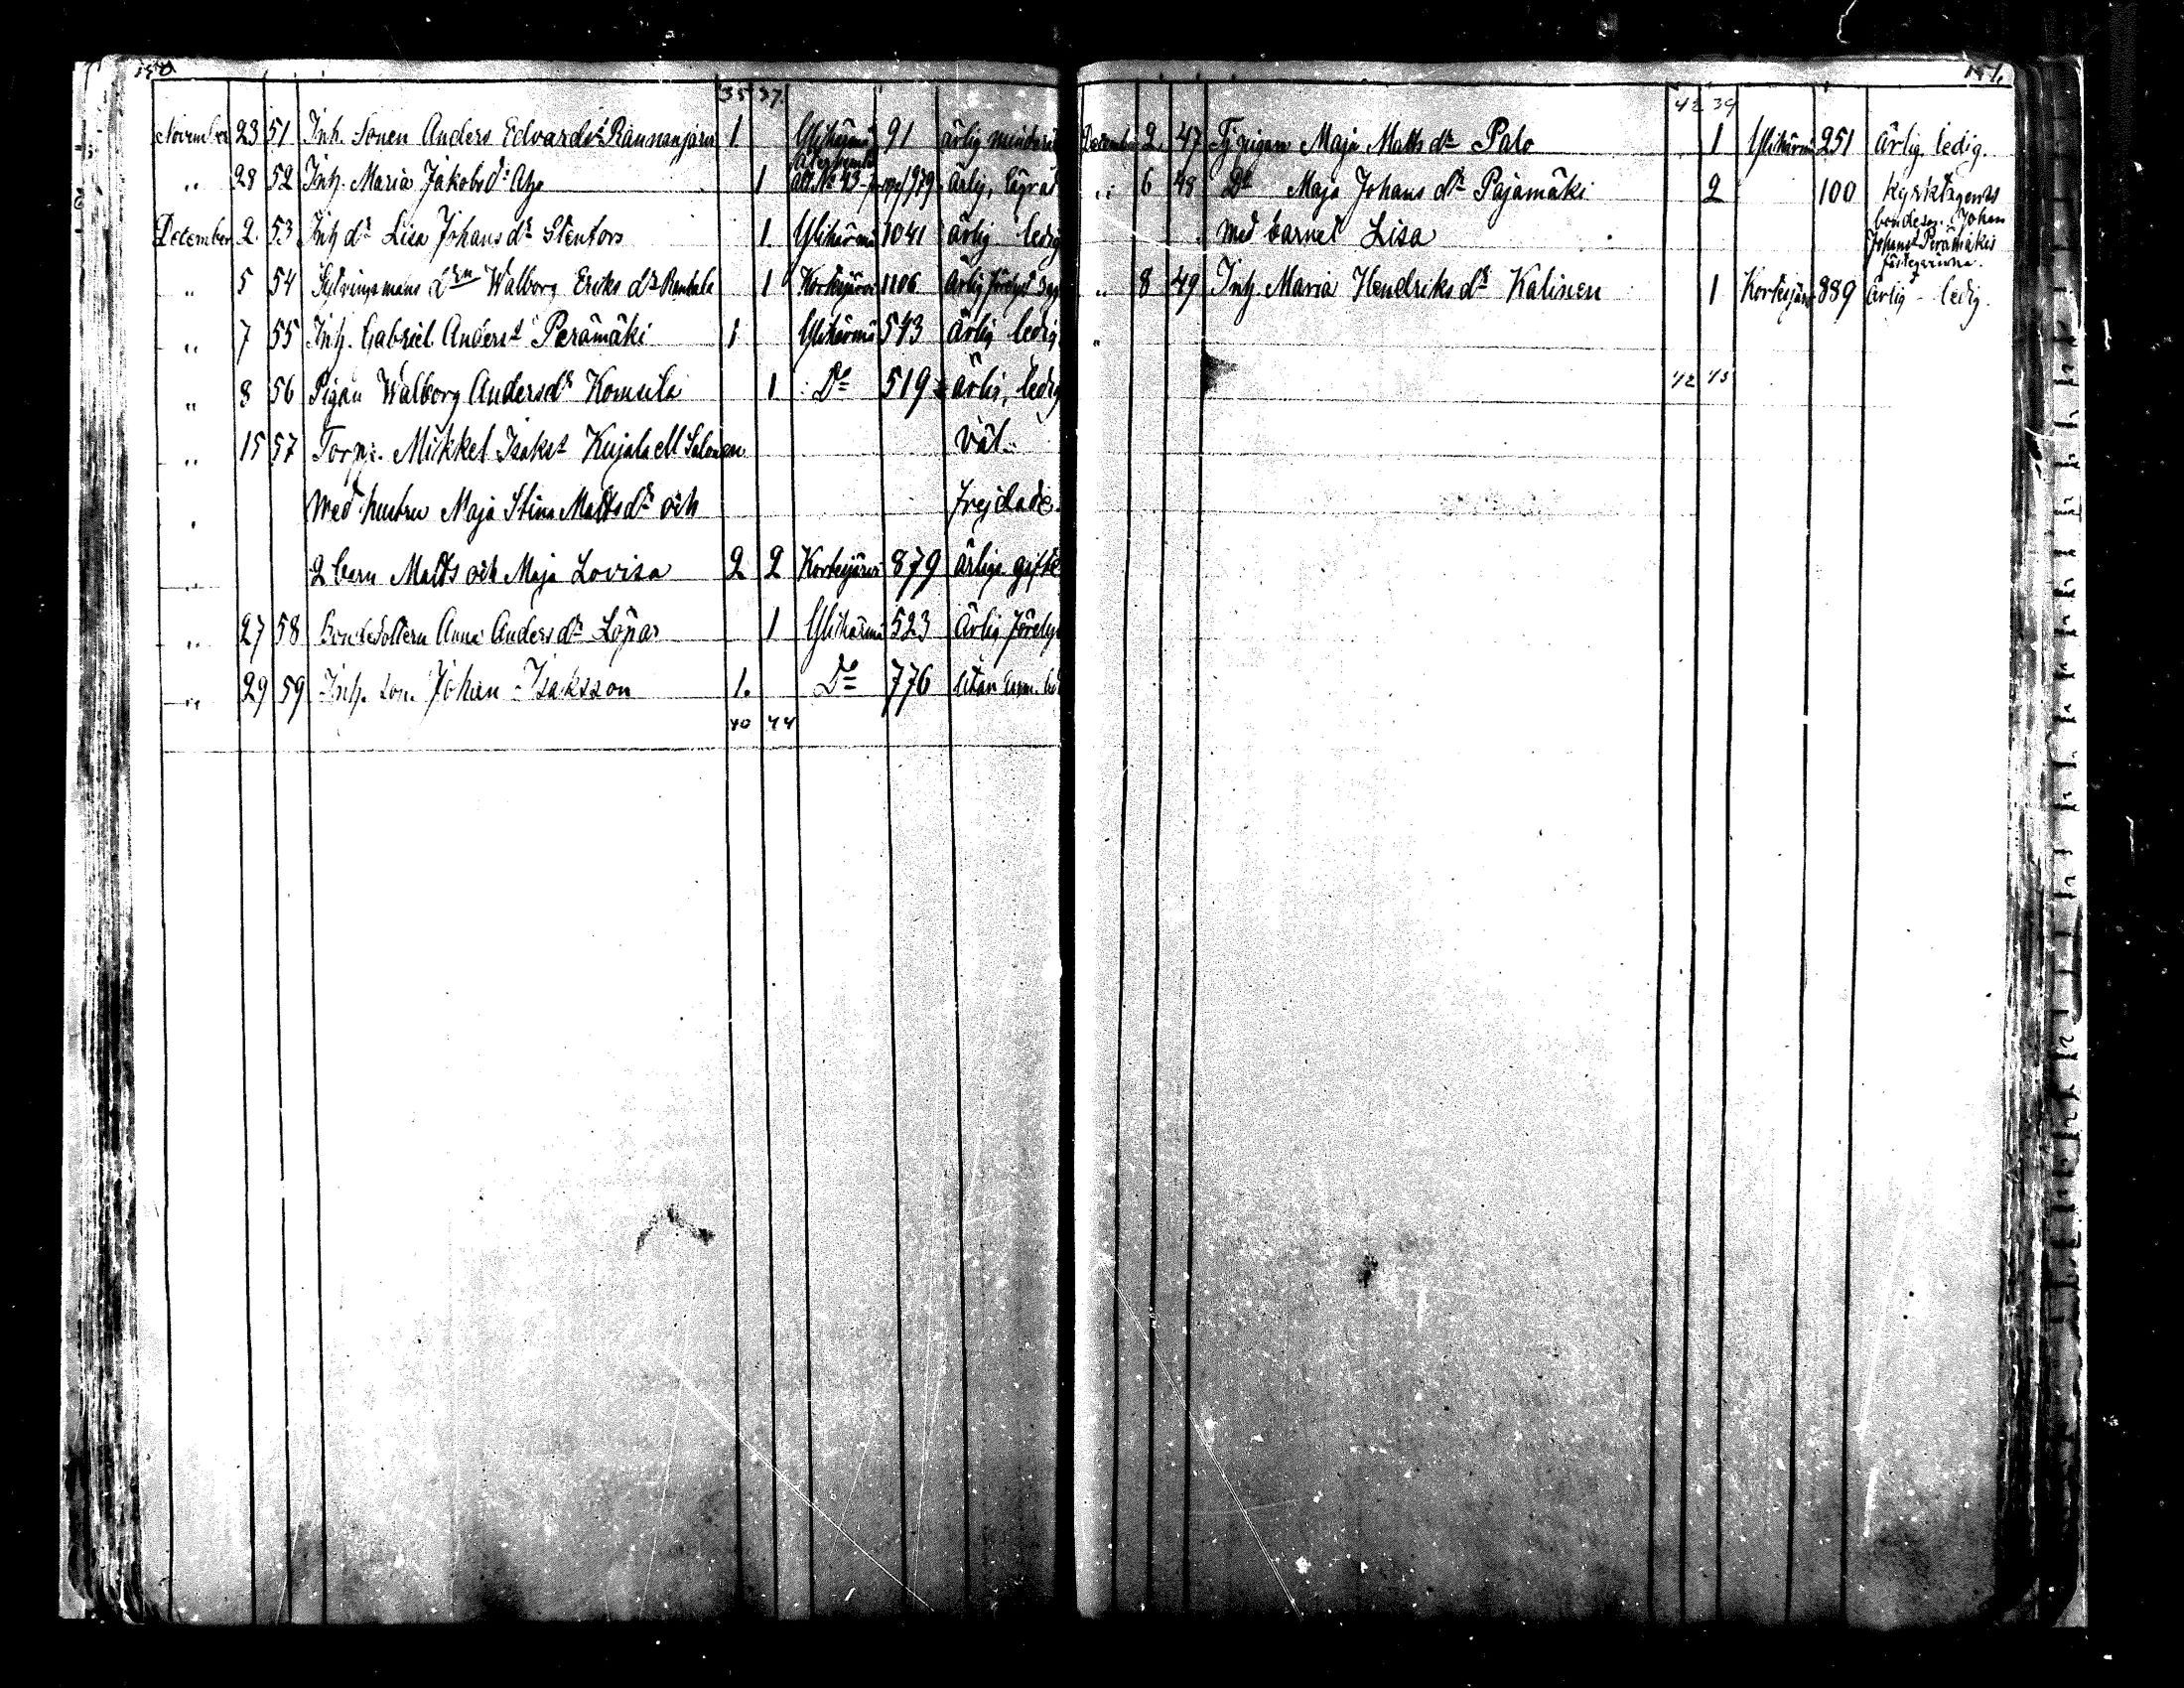 150
35 37
November 23 51 Inh. Sonen Anders Edvards Rannanjärvi 1. Ylihärmä 91 ärlig
„ 28 52 Inh. Maria Jakobs dr 1 att. No 43 979 Ärlig,
December 2. 53 Inh dr Lisa Johans dr Stenfors 1. Ylihärmä 1041 ärlig ledig
„ 5 54 drn Walborg Eriks dr 1 Kortesjärvi 1106 Ärlig
„ 7 55 Inh. Gabriel Anderss Perämäki 1 Ylihärmä 543 Ärlig ledig
„ 8 56 Pigan Walborg Andersdr Komsila 1 Do 519 Ärlig, ledig
„ 15 57 Torp: Mikkel Isakss Kujala ell Salonen väl
med hustru Maja Stina Mattsdr och frejdade.
2 barn Matts och Maja Lovisa 2 2 Kortesjärvi 879 ärliga gifte
„ 27 58 Bondedottern Anna Anders dr Löpar 1 Ylihärmä 523 Ärlig
„ 29 59 Inh. son Johan Isaksson 1. Do 776 Utan
40 44
151.
42 39
December 2 47 Tjpigan Maja Matts dr Palo 1 Ylihärmä 251 Ärlig ledig.
„ 6 48 Do Maja Johans dr Pajamäki 2 100 Kyrktagen
bondes. Johan
med barnet Lisa Johans Perämäkis
„ 8 49 Inh Maria Hendriks dr Kalinen 1 Kortesjärvi 889 Ärlig - ledig.
„
42 43